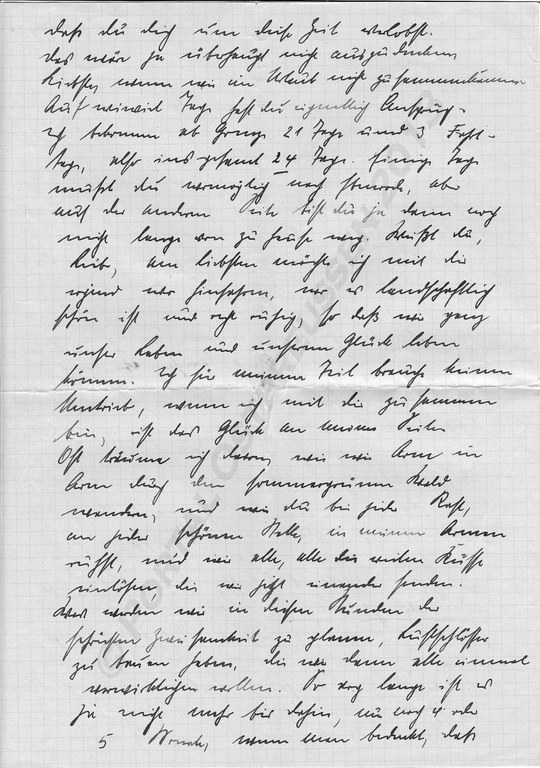 daß du dich um diese Zeit verlobst.
das wär ja überhaupt nicht auszudenken
Liebstes, wenn wir im Urlaub nicht zusammenkämen
Auf wieviel Tage hast du eigentlich Anspruch.
Ich bekomme ab Grenze 21 Tage und 3 Fahr-
tage, also insgesamt 24 Tage. Einige Tage
mußt du womöglich nach, aber
auf der anderen Seite bist du ja dann noch
nicht lange von zu Hause weg. Weißt du,
Lieb, am liebsten möchte ich mit dir
irgend wo hinfahren, wo es landschaftlich
schön ist und recht ruhig, so daß wir ganz
unser Leben und unserem Glück leben
können. Ich für meinen Teil brauche keinen
Umtrieb, wenn ich mit dir zusammen
bin, ist das Glück an meiner Seite.
Oft träume ich davon, wie wir Arm in
Arm durch den sommergrünen Wald
wandern, und wie du bei jeder Rast,
an jeder schönen Stelle, in meinen Armen
ruhst, und wir alle, alle die vielen Küsse
einlösen die wir jetzt einander senden.
Was werden wir in diesen Stunden der
schönsten Zweisamkeit zu planen, Luftschlösser
zu bauen haben, die wir dann alle einmal
verwirklichen wollen. So arg lange ist es
ja nicht mehr bis dahin, nur noch 4 oder
5 Monate, wenn man bedenkt, daß